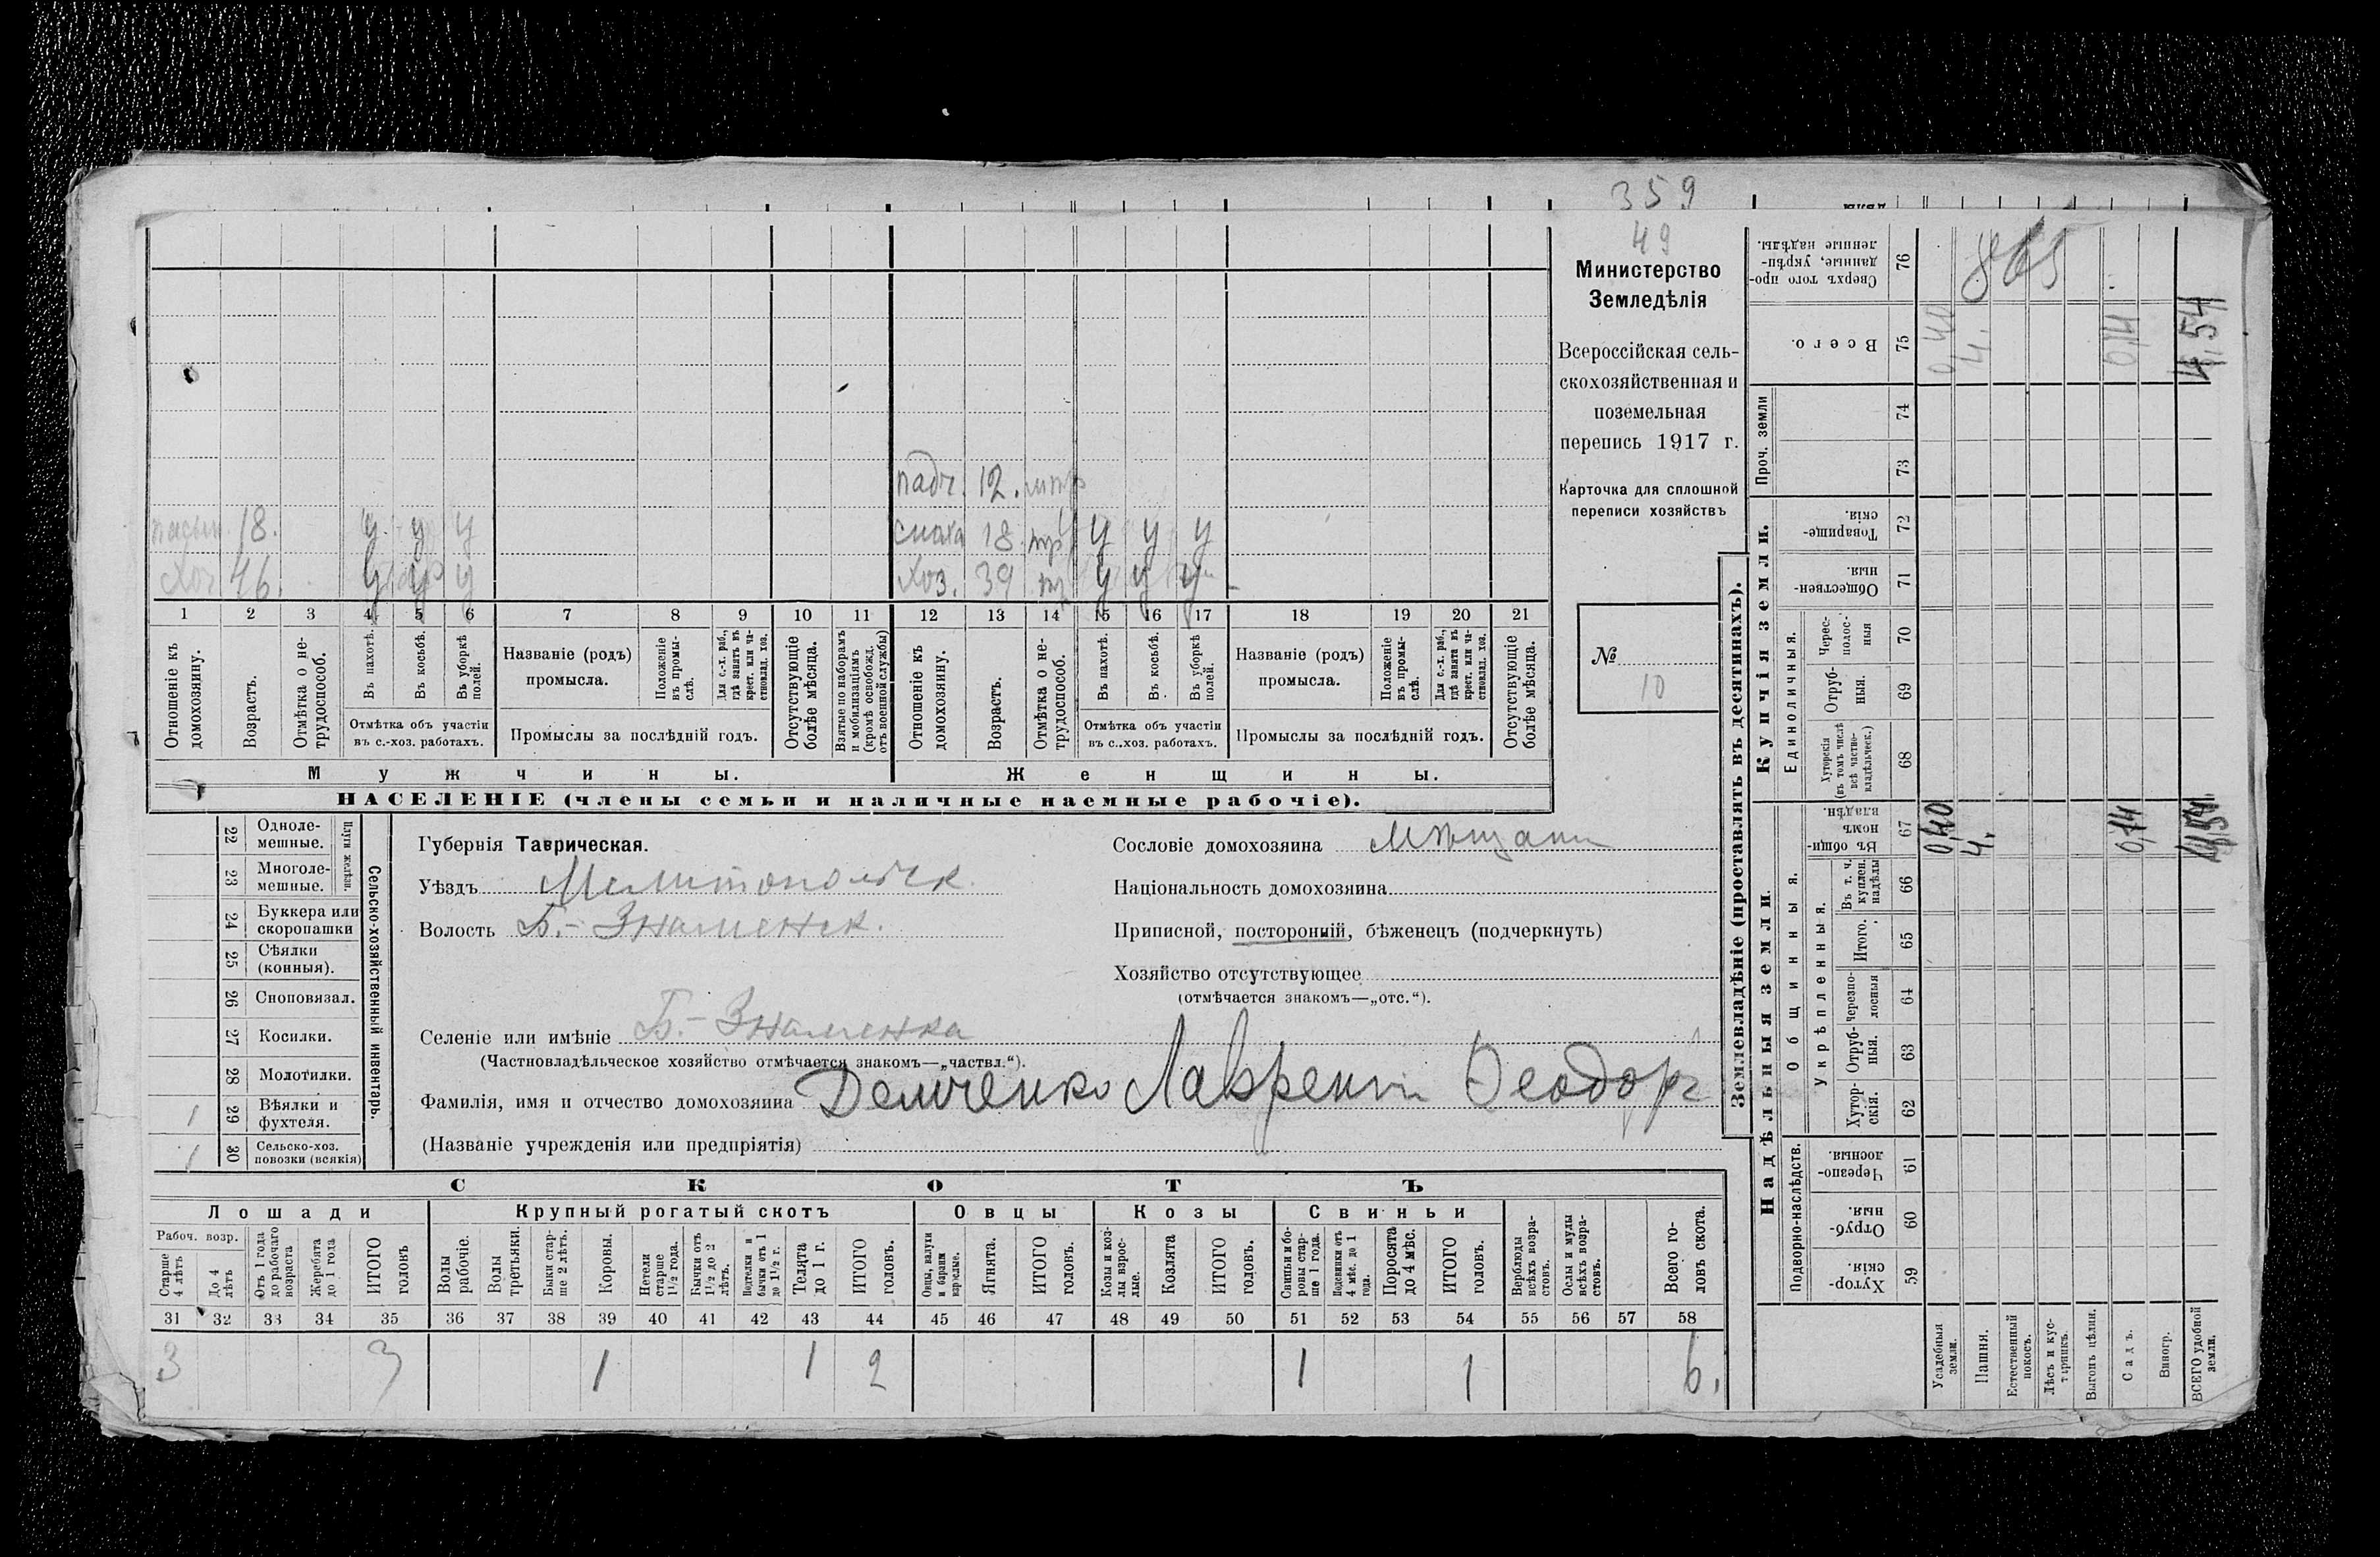 359
49
Министерство
Земледѣлія
Всероссійская сель-
скохозяйственная и
поземельная
перепись 1917 г.
Карточка для сплошной
переписи хозяйствъ
№
10
падч. 12.
пасын. 18. у у у
снаха 18 у у у
хоз 46. у у у
хоз. 39 у у у
1 2 3 4 5 6 7 8 9 10 11 12 13 14 15 16 17 18 19 20 21
Отношеніе къ домохозяину.
Возрастъ.
Отмѣтка о не-трудоспособ.
Въ пахотѣ.
Въ косьбѣ.
Въ уборкѣ полей.
Отмѣтка объ участіи
въ с.-хоз. работахъ.
Названіе (родъ)
промысла.
Положеніе въ промы-слѣ.
Для с.-х. раб., гдѣ занятъ въ крест. или ча-стновлад. хоз.
Промыслы за послѣдній годъ.
Отсутствующіе болѣе мѣсяца.
Взятые по наборамъ и мобилизаціямъ (кромѣ освобожд. отъ военной службы)
Отношеніе къ домохозяину.
Возрастъ.
Отмѣтка о не-трудоспособ.
Въ пахотѣ.
Въ косьбѣ.
Въ уборкѣ полей.
Отмѣтка объ участіи
въ с..хоз. работахъ.
Названіе (родъ)
промысла.
Положеніе въ промы-слѣ.
Для с.-х. раб., гдѣ занята въ крест. или ча-стновлад. хоз.
Промыслы за послѣдній годъ.
Отсутствующіе болѣе мѣсяца.
Мужчины.
Женщины.
НАСЕЛЕНІЕ (члены семьи и наличные наемные рабочіе).
22 Одноле-мешные.
23 Многоле-мешные.
Плуги желѣзн.
24 Буккера или скоропашки
25 Сѣялки (конныя).
26 Сноповязал.
27 Косилки.
28 Молотилки.
1 29 Вѣялки и фухтеля.
1 30 Сельско-хоз. повозки (всякія)
Сельско-хозяйственный инвентарь.
Губернія Таврическая.
Уѣздъ Мелитопольск.
Волость Б.-Знаменск.
Селеніе или имѣніе Б.-Знаменка
(Частновладѣльческое хозяйство отмѣчается знакомъ—„частвл.“).
Фамилія, имя и отчество домохозяина Демченко Лаврентий Феодор
(Названіе учрежденія или предпріятія)
Сословіе домохозяина Мѣщанин
Національность домохозяина
Приписной, посторонній, бѣженецъ (подчеркнуть)
Хозяйство отсутствующее
(отмѣчается знакомъ—„отс.“).
СКОТЪ
Лошади
Крупный рогатый скотъ
Овцы
Козы
Свиньи
Рабоч. возр.
Старше 4 лѣтъ
До 4 лѣтъ
Отъ 1 года до рабочаго возраста
Жеребята до 1 года
ИТОГО головъ
Волы рабочіе.
Волы третьяки.
Быки стар-ше 2 лѣтъ.
Коровы.
Нетели старше 1½ года.
Бычки отъ 1½ до 2 лѣтъ.
Подтелки и бычки отъ 1 до 1½ г.
Телята до 1 г.
ИТОГО головъ.
Овцы, валухи и бараны взрослые.
Ягнята.
ИТОГО головъ.
Козы и коз-лы взрос-лые.
Козлята
ИТОГО головъ.
Свиньи и бо-ровы стар-ше 1 года.
Подсвинки отъ 4 мѣс. до 1 года.
Поросята до 4 мѣс.
ИТОГО головъ.
Верблюды всѣхъ возра-стовъ.
Ослы и мулы всѣхъ возра-стовъ.
Всего го-ловъ скота.
31 32 33 34 35 36 37 38 39 40 41 42 43 44 45 46 47 48 49 50 51 52 53 54 55 56 57 58
3 3 1 1 2 1 1 6.
Землевладѣніе (проставлять въ десятинахъ).
Надѣльныя земли.
Купчія земли.
Проч. земли
Подворно-наслѣдств.
Общинныя.
Укрѣпленныя.
Единоличныя.
76 Сверхъ того про-данные, укрѣп-ленные надѣлы.
75 Всего. 0,40 4. 0,14 4,54
74
73
72 Товарище-скія.
71 Обществен-ныя.
70 Черес-полос-ныя
69 Отруб-ныя.
68 Хуторскія (въ томъ числѣ всѣ частно-владѣльческ.)
67 Въ общи-номъ владѣн. 0,40 4. 0,14 4,54
66 Въ т. ч. куплен. надѣлы
65 Итого.
64 Черезпо-лосныя
63 Отруб-ныя.
62 Хутор-скія.
61 Черезпо-лосныя.
60 Отруб-ныя.
59 Хутор-скія.
Усадебныя земли.
Пашня.
Естественный покосъ.
Лѣсъ и кус-тарникъ.
Выгонъ цѣлин.
Садъ.
Виногр.
ВСЕГО удобной земли.